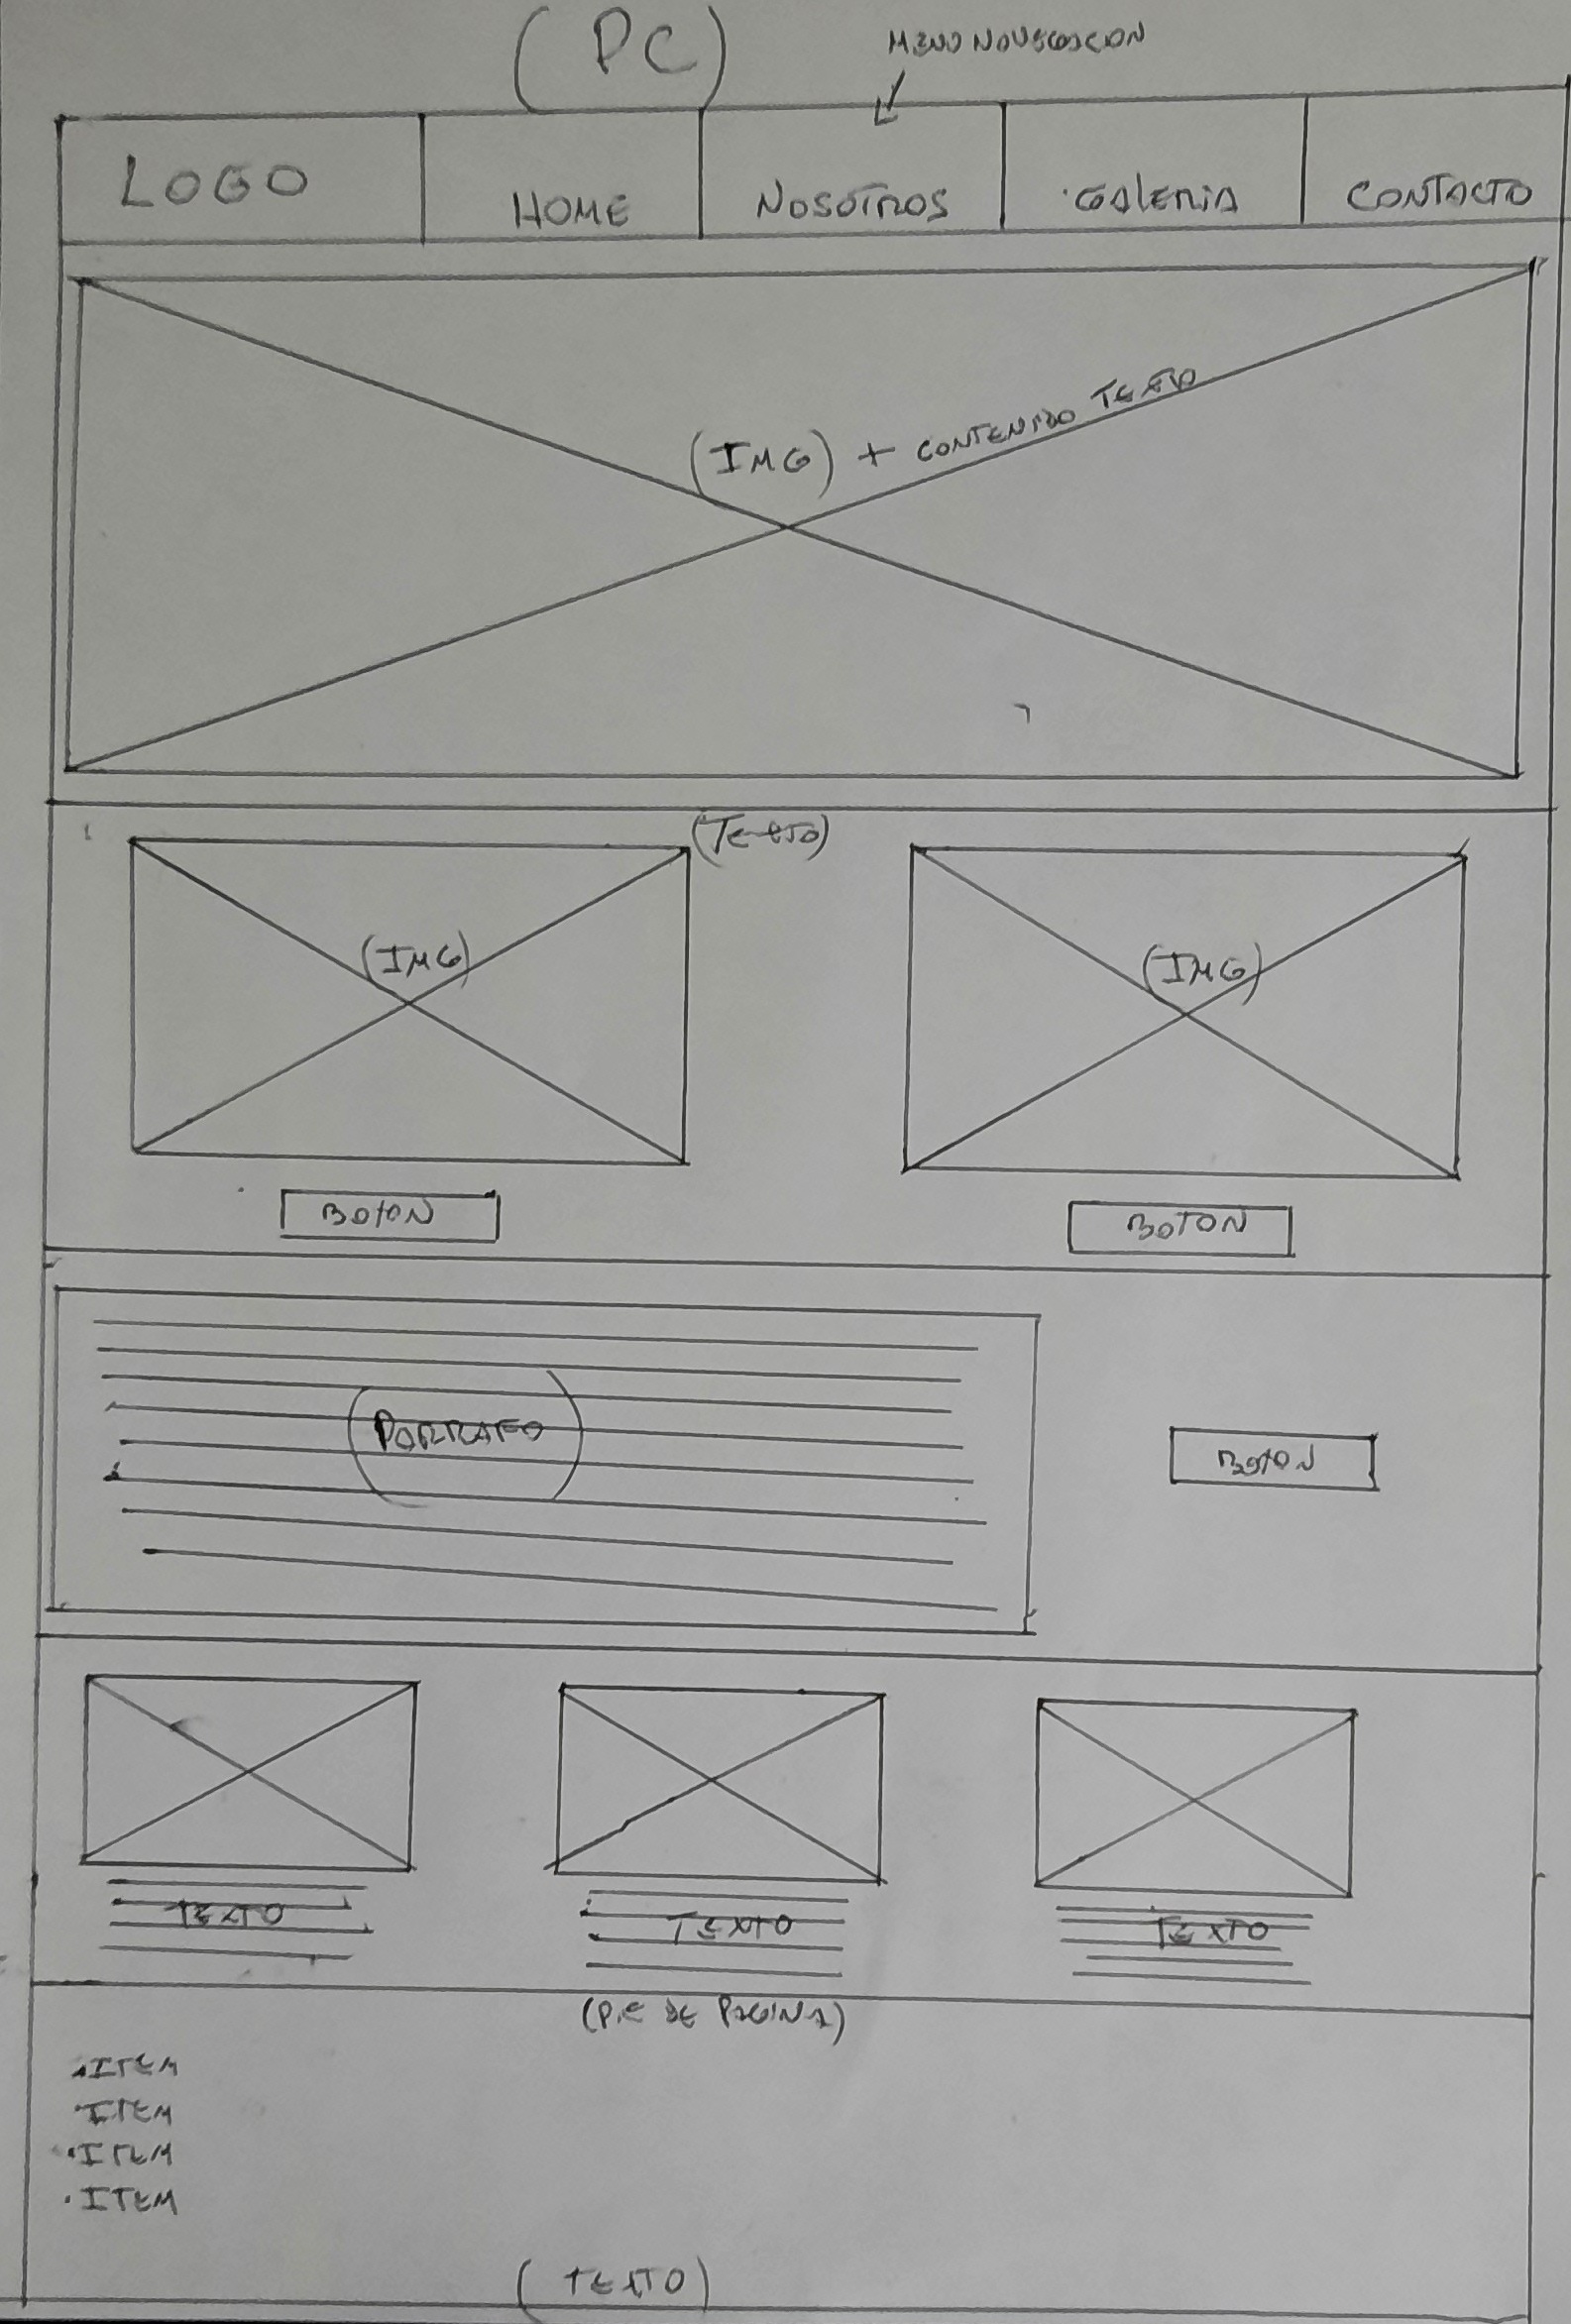 (PC)
MENU NAVEGACION
LOGO
HOME
NOSOTROS
GALERIA
CONTACTO
(IMG) + CONTENIDO TEXTO
(TEXTO)
(IMG)
(IMG)
BOTON
BOTON
(PORRAFO)
BOTON
TEXTO
TEXTO
TEXTO
(PIE DE PAGINA)
• ITEM
• ITEM
• ITEM
• ITEM
(TEXTO)